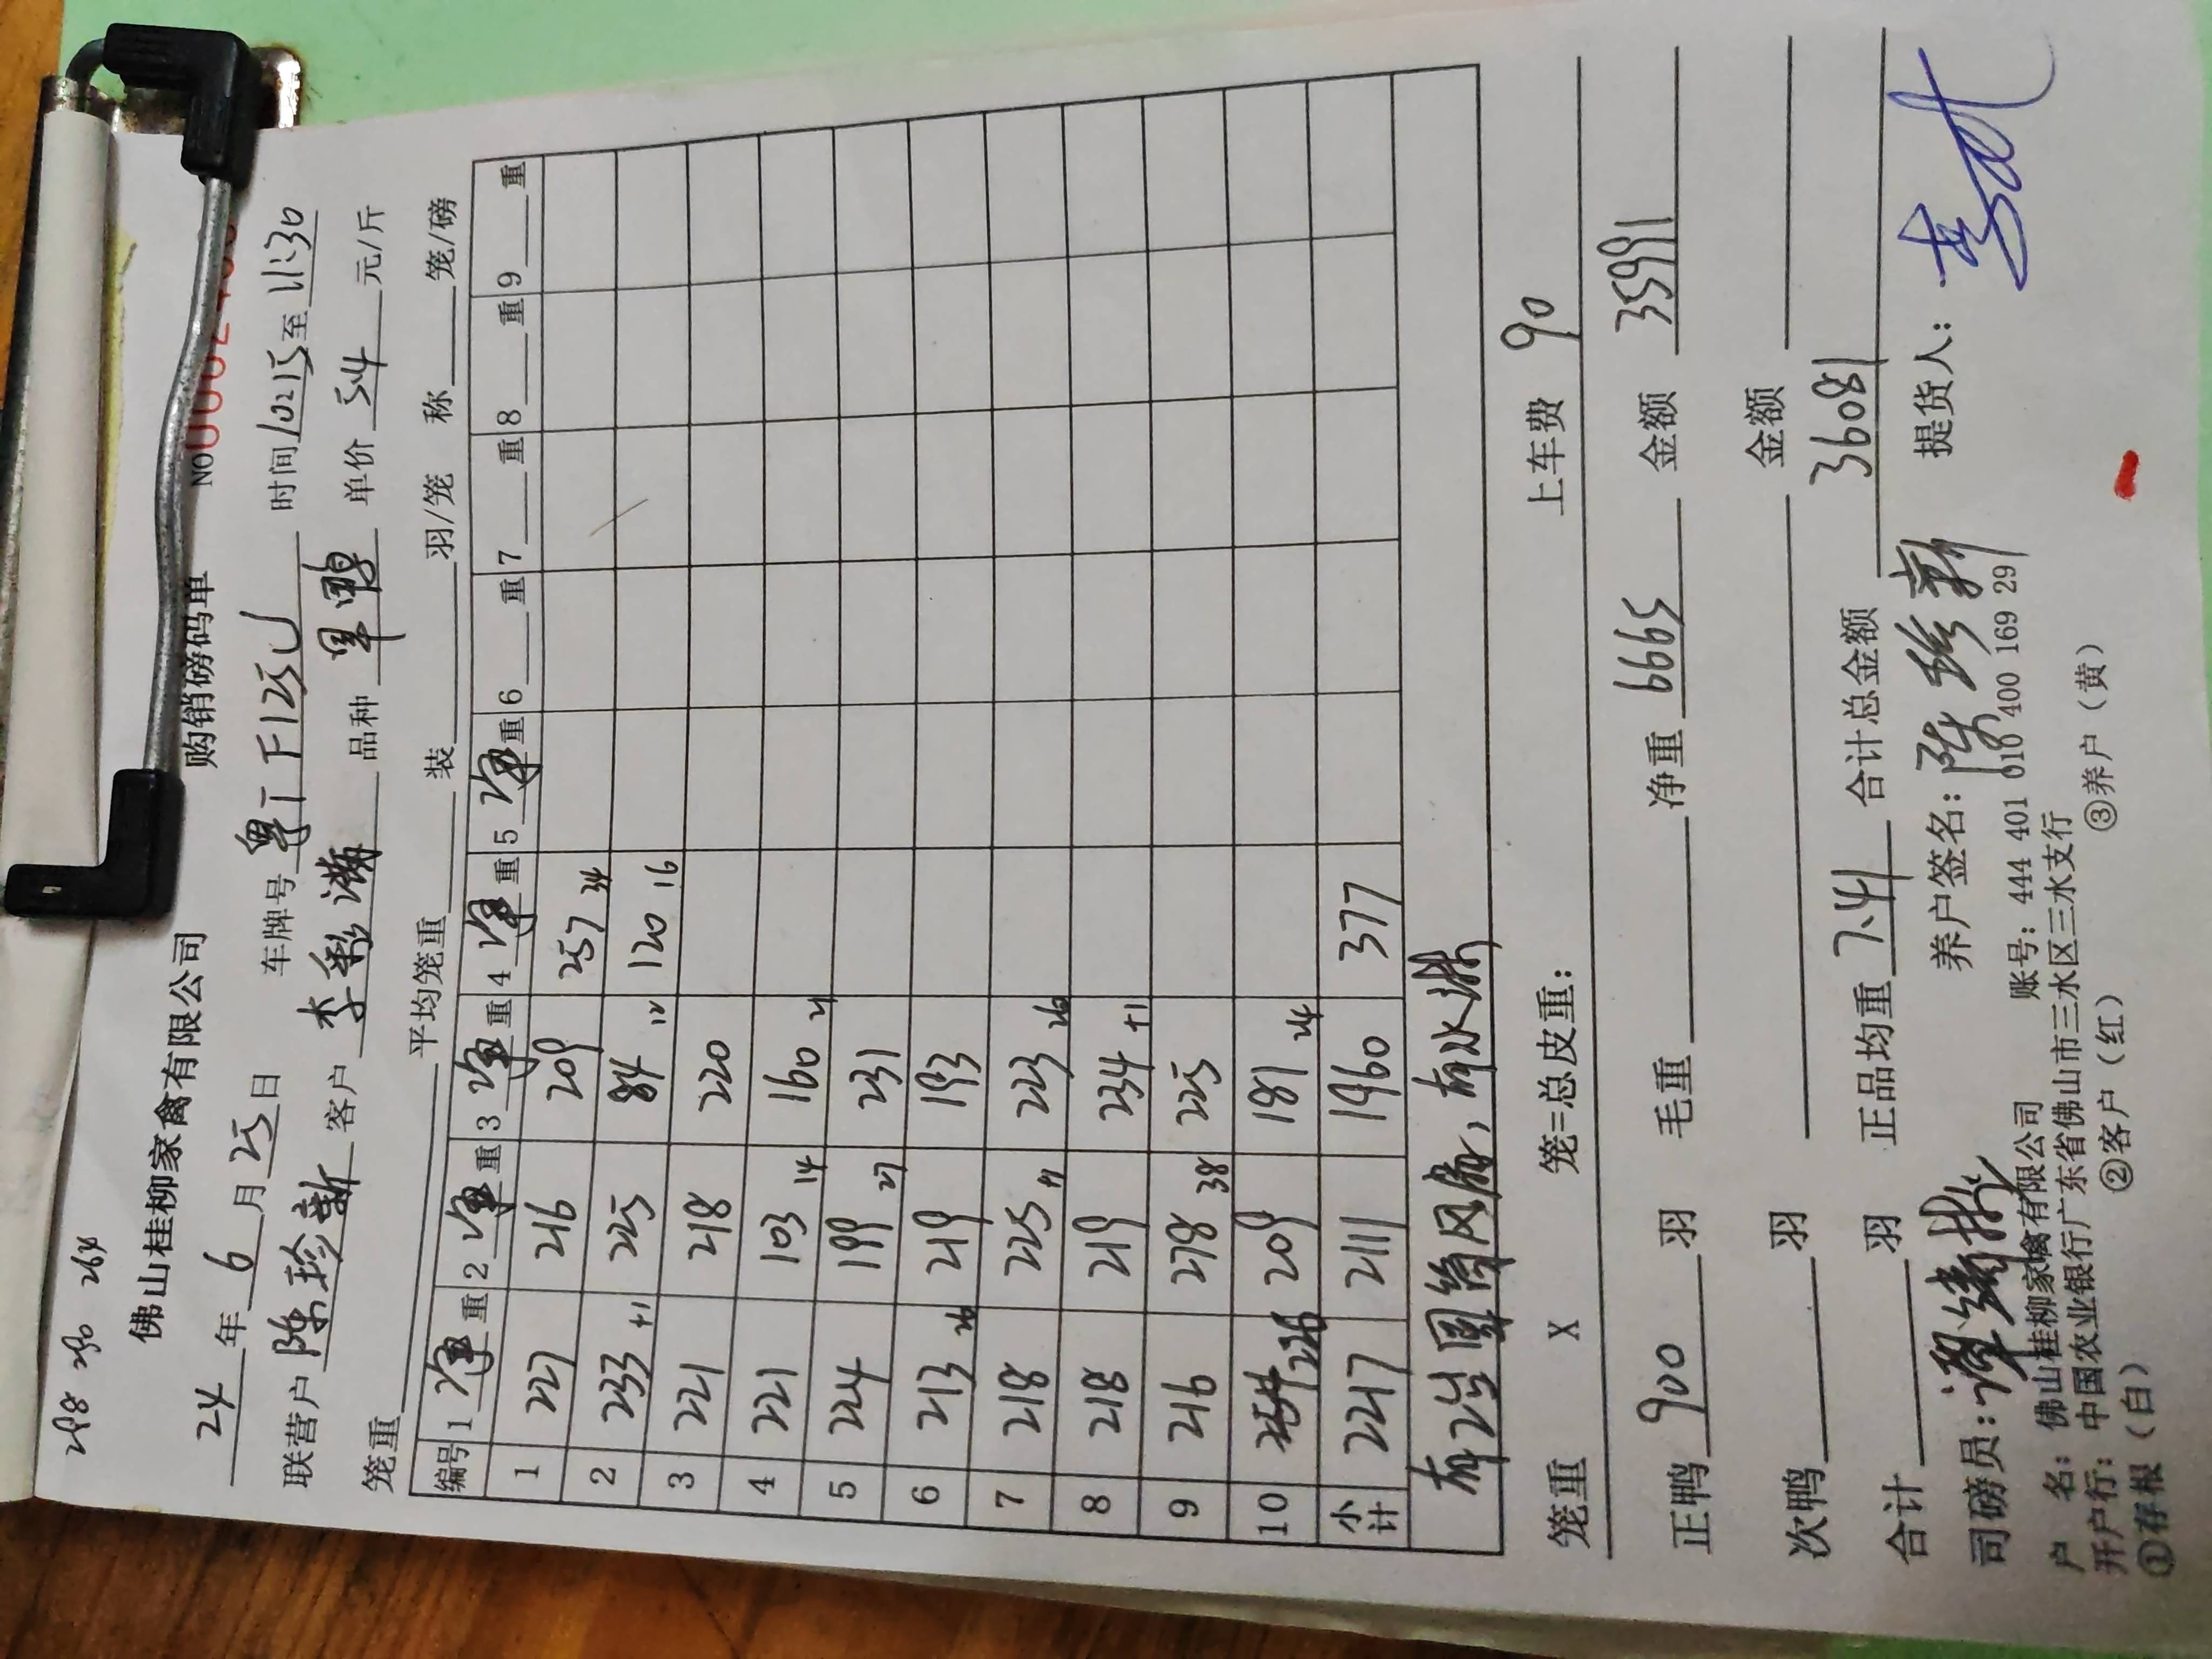 298 290 264
佛山桂柳家禽有限公司 购销磅码单 NO
24年6月25日 车牌号粤TF125U 时间10215至11:30
联营户陈珍新 客户李 满 品种 鸭 单价5.4元/斤
笼重 平均笼重 装 羽/笼 称 笼/磅
编号 1净重 2净重 3净重 4净重 5净重 6重 7重 8重 9重
1 227 216 209 257 34
2 233 +1 225 84 12 120 16
3 221 218 220
4 221 103 14 160 21
5 224 199 27 231
6 213 26 219 193
7 218 225 +1 223 26
8 218 219 234 +1
9 216 278 38 225
10 226 209 181 24
小计 2217 2111 1960 377
有2台圆筒风扇,有水淋
笼重 X 笼=总皮重: 上车费 90
正鸭 900 羽 毛重 净重 6665 金额 35991
次鸭 羽 金额
合计 羽 正品均重 7.41 合计总金额 36081
司磅员: 养户签名:陈珍新 提货人:
户 名: 佛山桂柳家禽有限公司 账号: 444 401 010 400 169 29
开户行: 中国农业银行广东省佛山市三水区三水支行
①存根(白) ②客户(红) ③养户(黄)